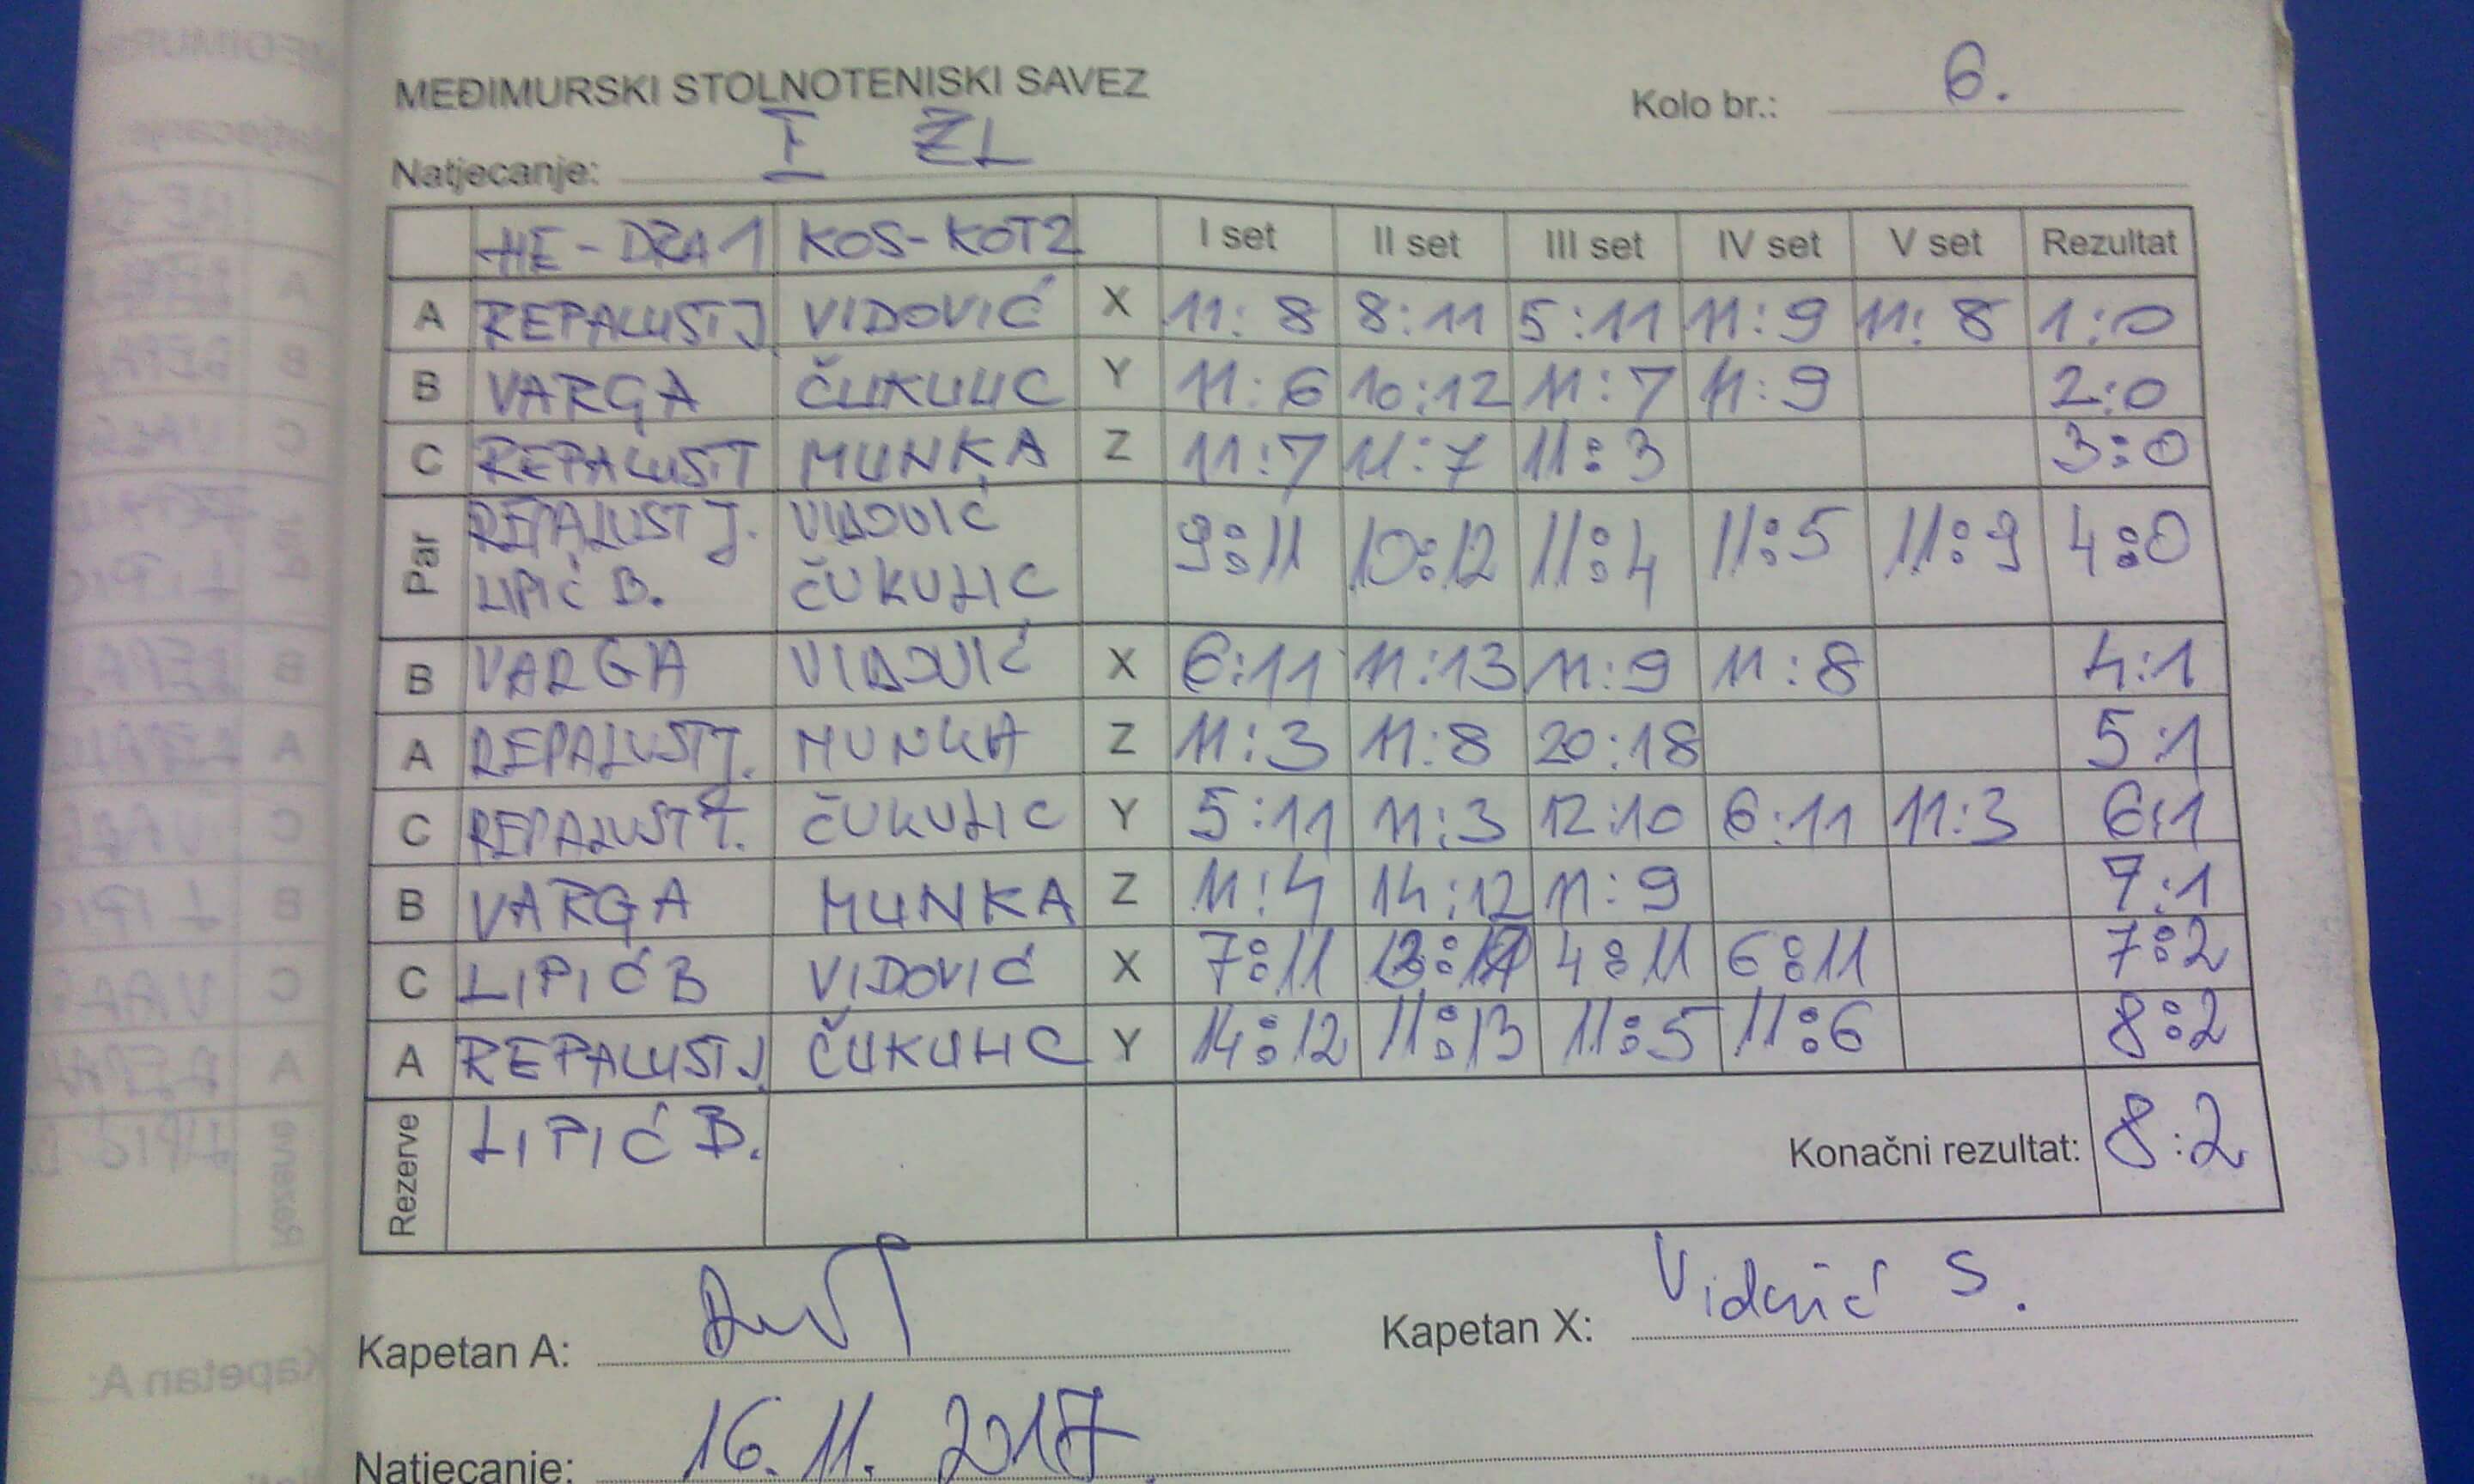 MEĐIMURSKI STOLNOTENISKI SAVEZ
Kolo br.: 6.
Natjecanje: I ŽL
HE-DRA1 KOS-KOT2 I set II set III set IV set V set Rezultat
A REPALUST J VIDOVIĆ X 11:8 8:11 5:11 11:9 11:8 1:0
B VARGA ČUKULIC Y 11:6 10:12 11:7 11:9 2:0
C REPALUST T MUNKA Z 11:7 11:7 11:3 3:0
Par REPALUST J. VIDOVIĆ 9:11 10:12 11:4 11:5 11:9 4:0
LIPIĆ B. ČUKULIC
B VARGA VIDOVIĆ X 6:11 11:13 11:9 11:8 4:1
A REPALUST J. MUNKA Z 11:3 11:8 20:18 5:1
C REPALUST T. ČUKULIC Y 5:11 11:3 12:10 6:11 11:3 6:1
B VARGA MUNKA Z 11:4 14:12 11:9 7:1
C LIPIĆ B VIDOVIĆ X 7:11 4:11 6:11 7:2
A REPALUST J ČUKULIC Y 14:12 11:13 11:5 11:6 8:2
Rezerve LIPIĆ B. Konačni rezultat: 8:2
Kapetan A: Kapetan X: Vidović S.
Natjecanje: 16.11.2017.